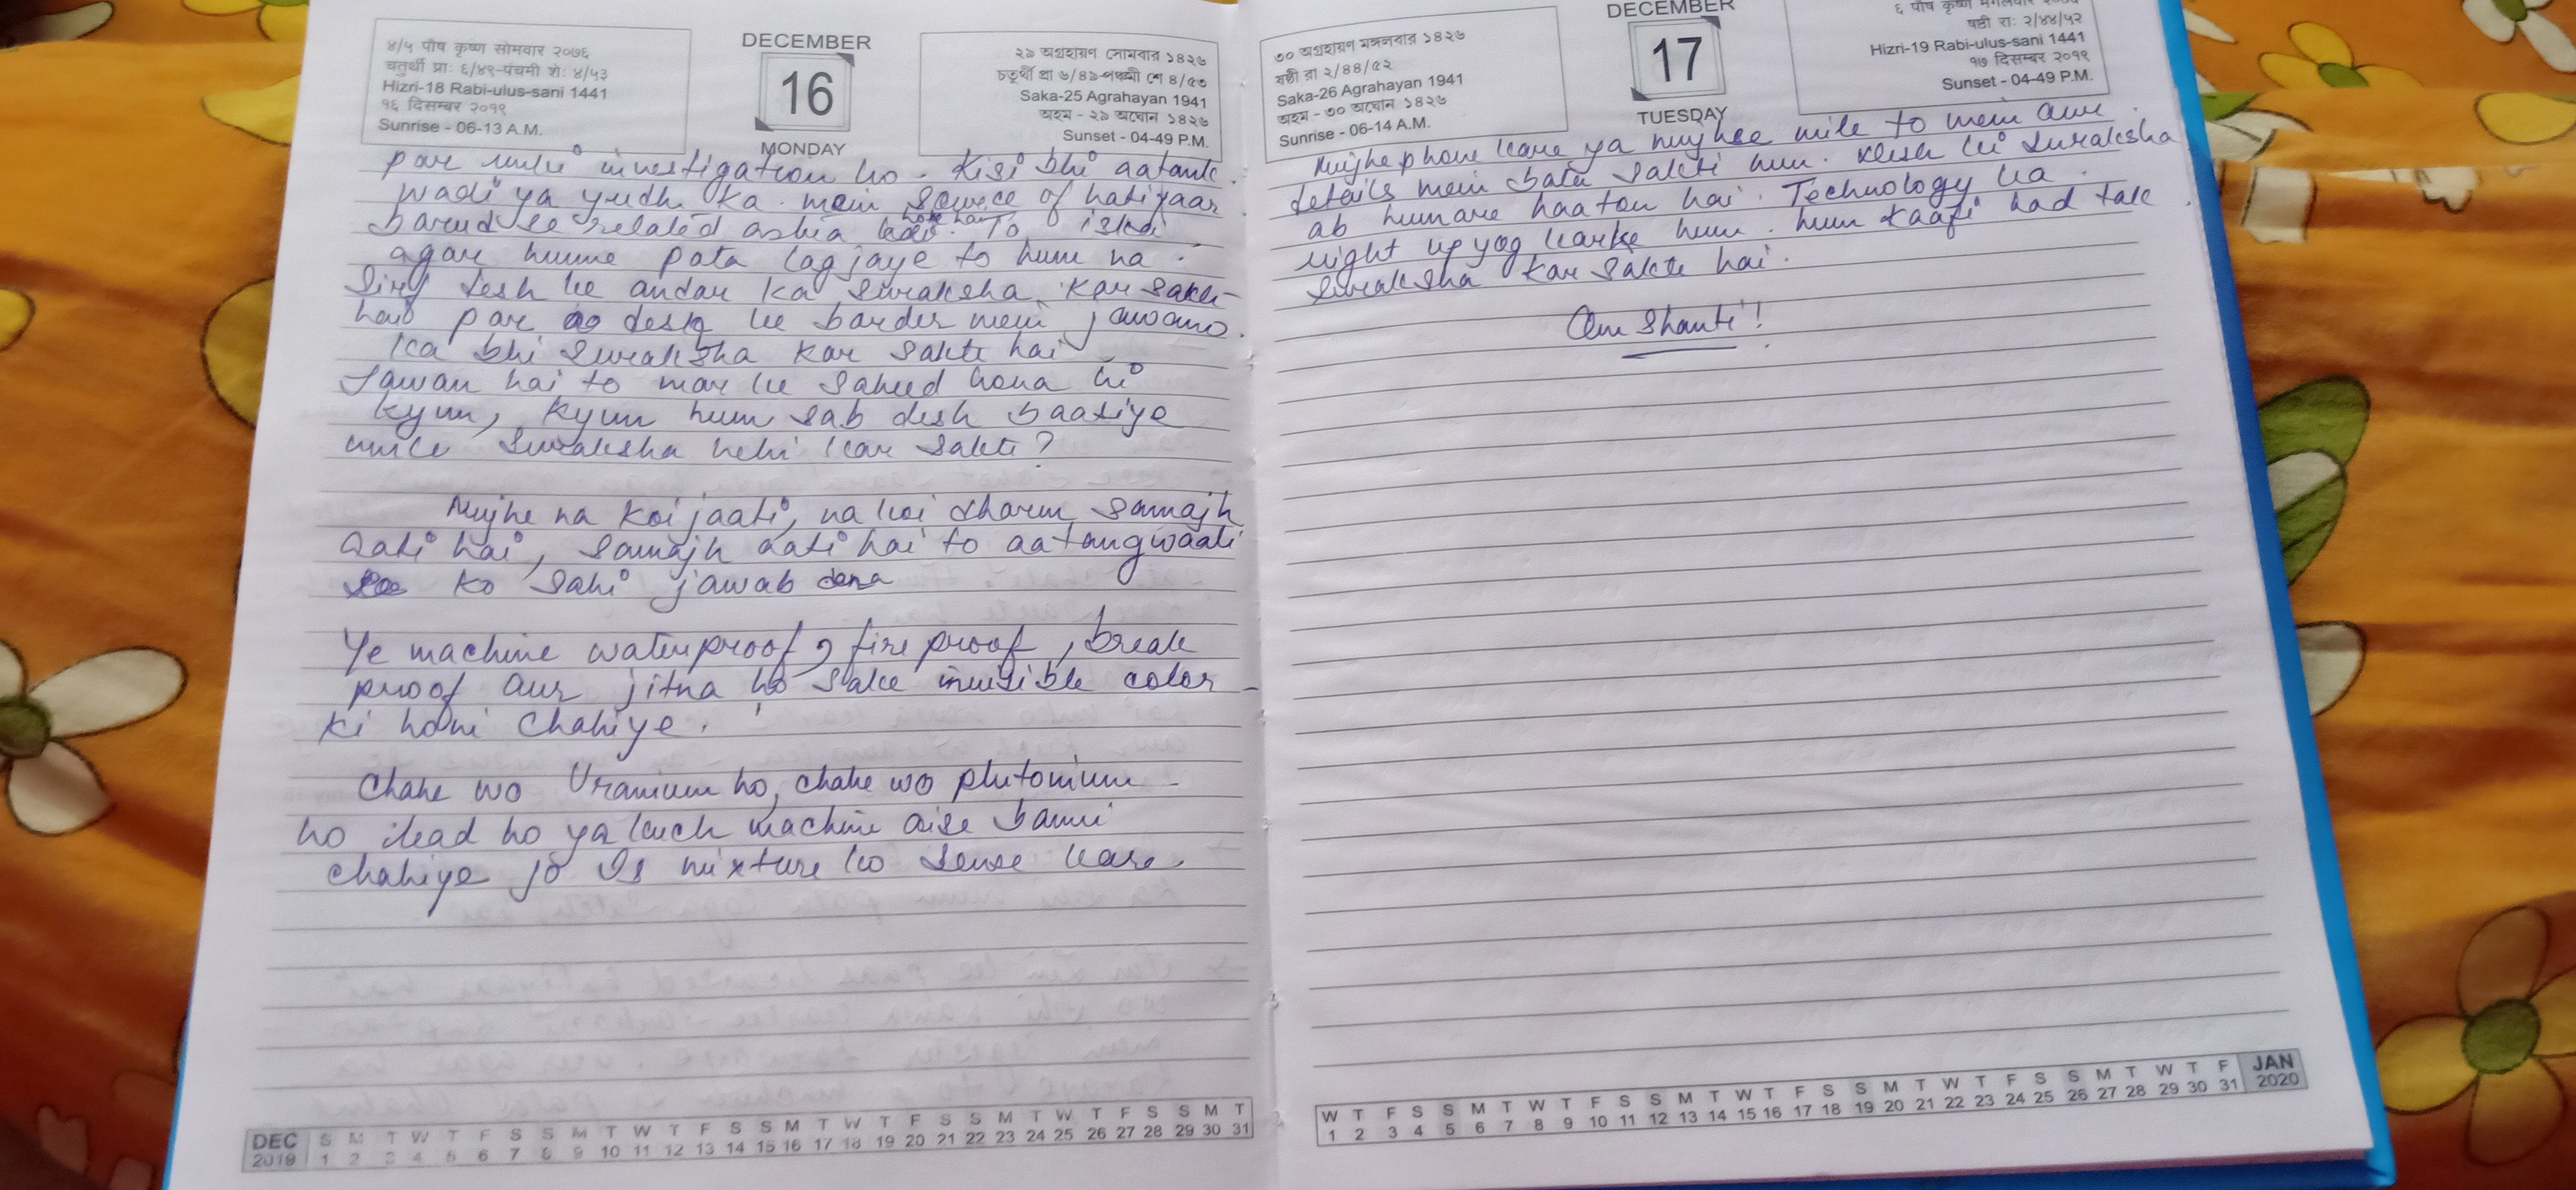 ४/५ पौष कृष्ण सोमवार २०७६
चतुर्थी प्रा: ६/४९-पंचमी शे: ४/५३
Hizri-18 Rabi-ulus-sani 1441
१६ दिसम्बर २०१९
Sunrise - 06-13 A.M.
DECEMBER
16
MONDAY
২৯ অগ্রহায়ণ সোমবার ১৪২৬
চতুর্থী প্রা ৬/৪৯-পঞ্চমী শে ৪/৫৩
Saka-25 Agrahayan 1941
অহম - ২৯ অঘোন ১৪২৬
Sunset - 04-49 P.M.
par unki investigation ho. Kisi bhi aatank
wadi ya yudh ka mein source of hatiyaar
barud se related ashia hote hai. To isko
agar humne pata lag jaye to hum na
Sirf desh ke andar ka suraksha kar sakte
hai par desh ke border mein jawano
ka bhi suraksha kar sakte hai
Jawan hai to mar ke saheed hona hi
kyun, kyun hum sab desh baatiye
unke suraksha nehi kar sakte?
Mujhe na koi jaati, na koi dharm samajh
aati hai, samajh aati hai to aatangwaati
ko sahi jawab dena
Ye machine waterproof, fire proof, break
proof aur jitna ho sake invisible color
ki honi chahiye.
Chahe wo Uranium ho, chahe wo plutonium
ho lead ho ya kuch machine aise banni
chahiye jo is mixture ko sense kare.
DEC 2019
S M T W T F S S M T W T F S S M T W T F S S M T W T F S S M T
1 2 3 4 5 6 7 8 9 10 11 12 13 14 15 16 17 18 19 20 21 22 23 24 25 26 27 28 29 30 31
৩০ অগ্রহায়ণ মঙ্গলবার ১৪২৬
ষষ্ঠী রা ২/৪৪/৫২
Saka-26 Agrahayan 1941
অহম - ৩০ অঘোন ১৪২৬
Sunrise - 06-14 A.M.
DECEMBER
17
TUESDAY
६ पौष कृष्ण मंगलवार २०७६
षष्ठी रा: २/४४/५२
Hizri-19 Rabi-ulus-sani 1441
१७ दिसम्बर २०१९
Sunset - 04-49 P.M.
Mujhe phone kare ya mujhse mile to mein aur
details mein bata sakti hun. Desh ki suraksha
ab humare haaton hai. Technology ka
right upyog karke hum hum kaafi had tak
suraksha kar sakte hai.
Om Shanti!
W T F S S M T W T F S S M T W T F S S M T W T F S S M T W T F
1 2 3 4 5 6 7 8 9 10 11 12 13 14 15 16 17 18 19 20 21 22 23 24 25 26 27 28 29 30 31
JAN 2020